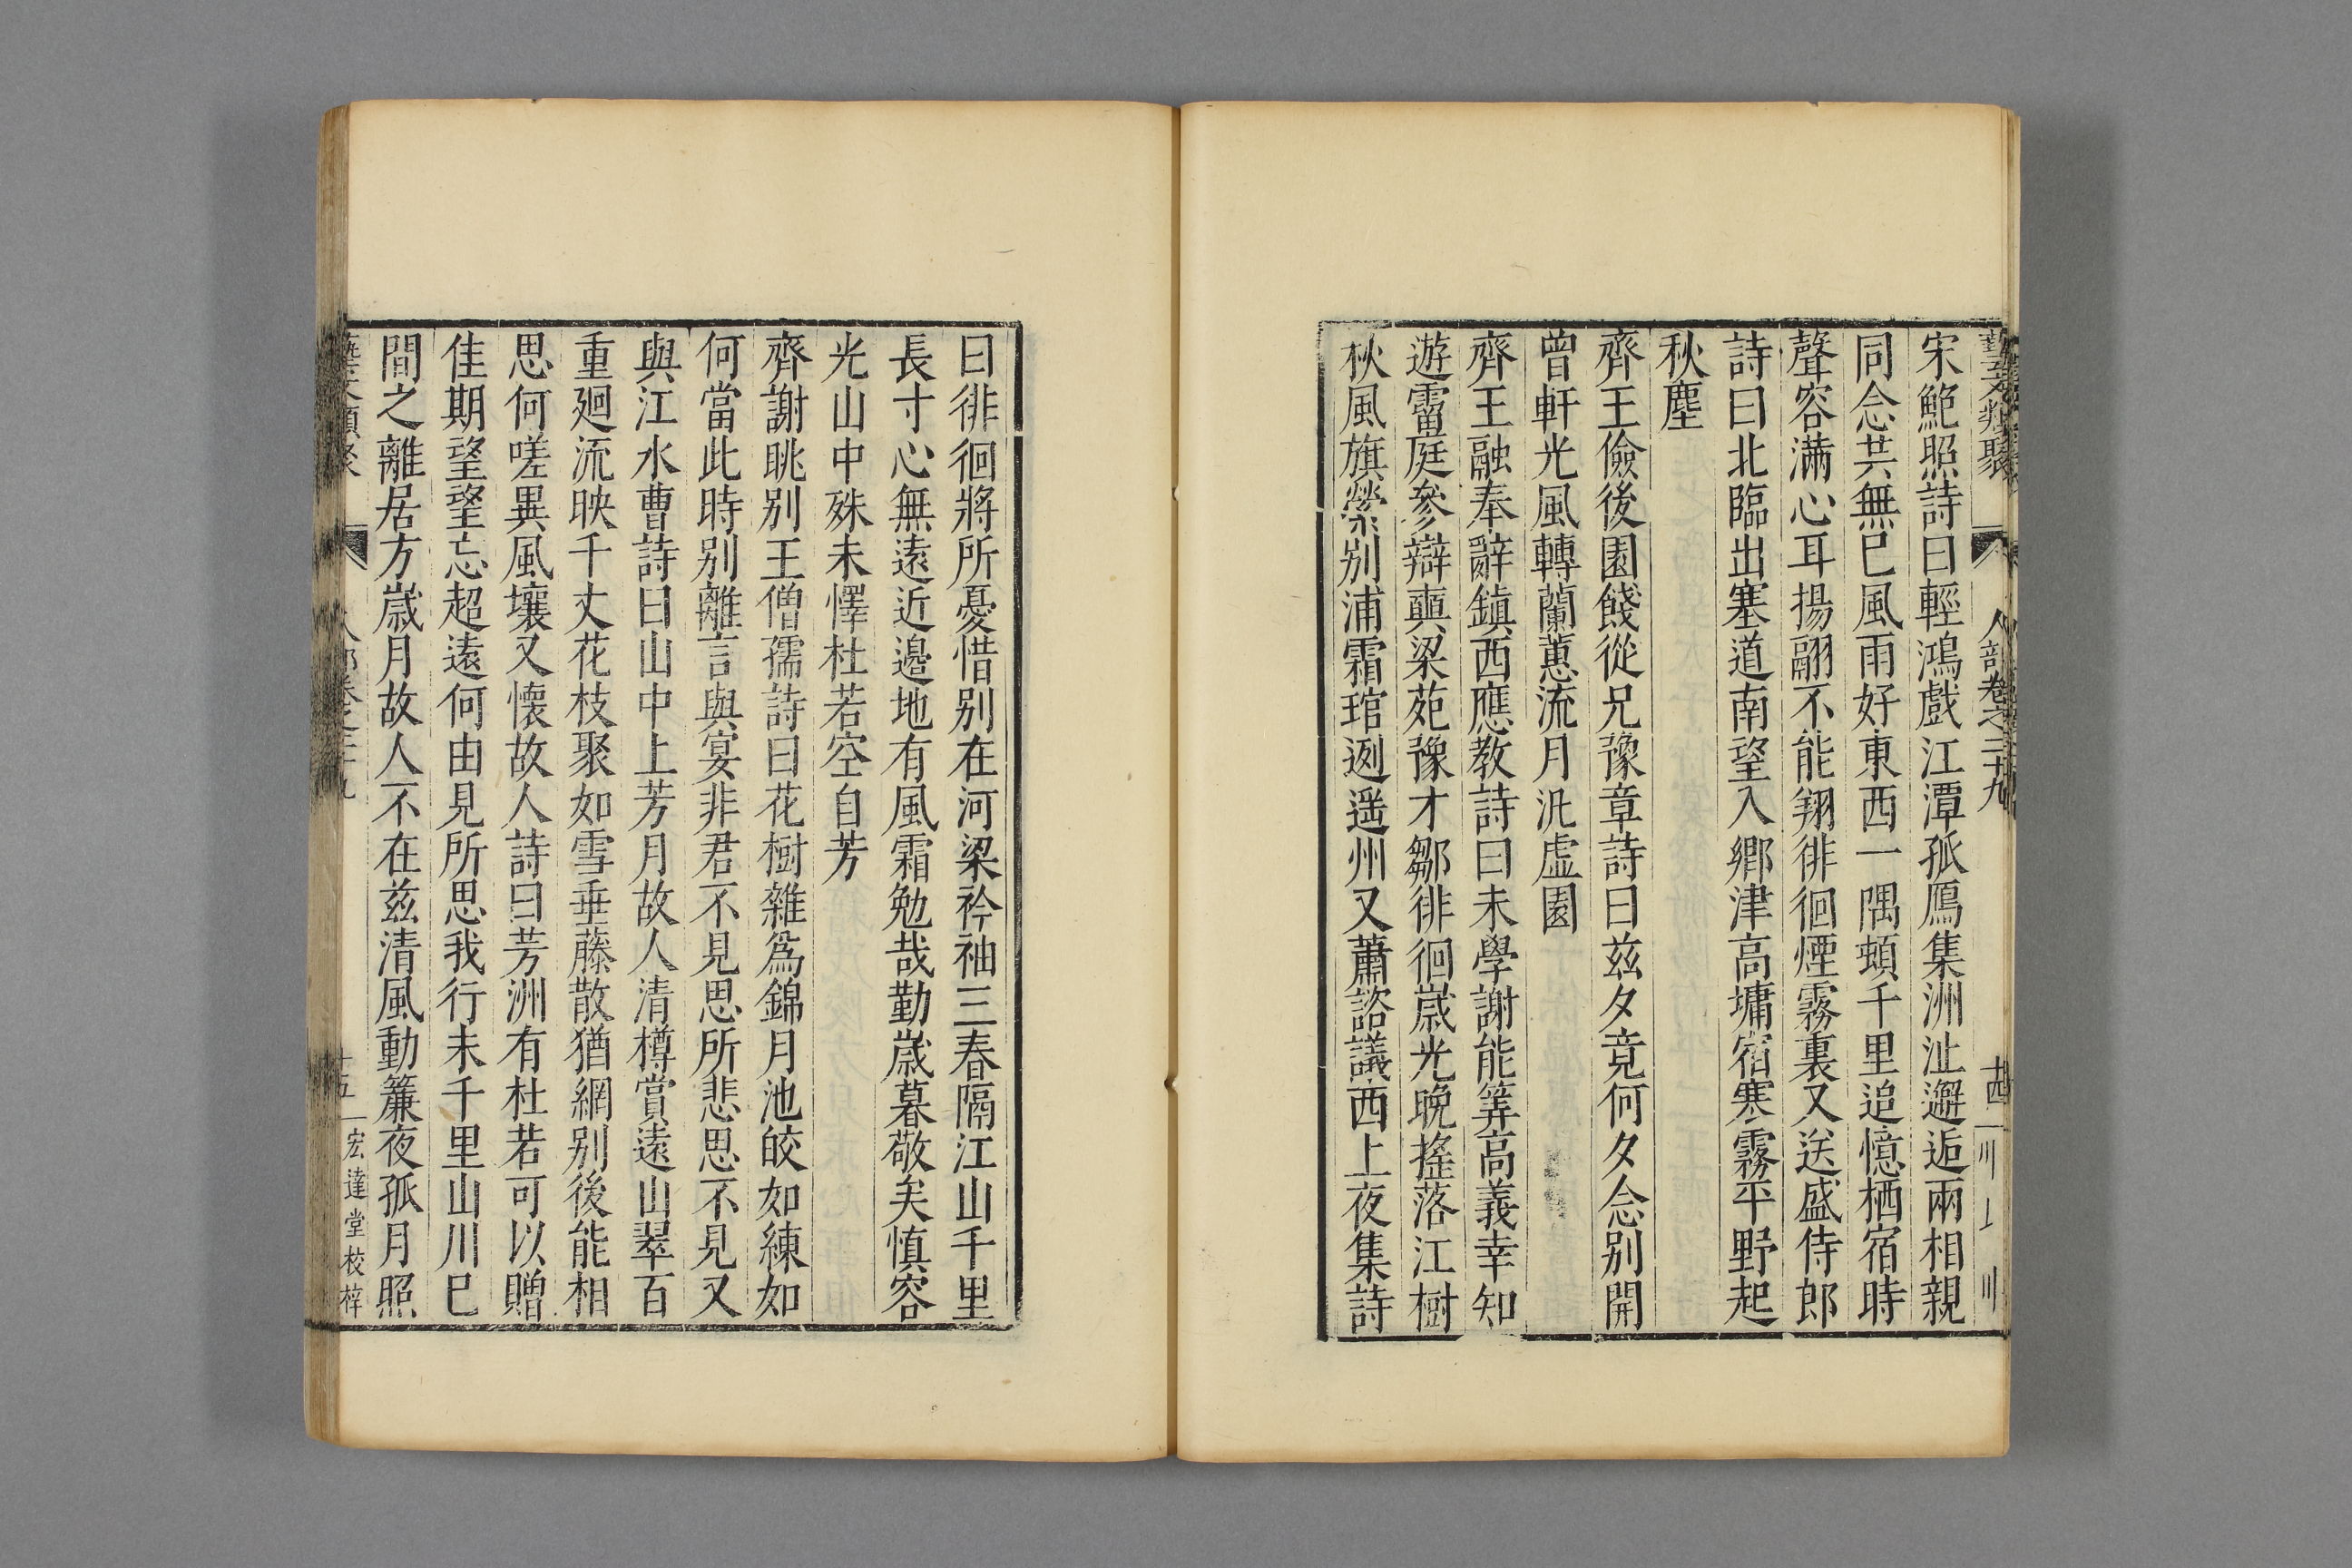 藝文類聚 人部卷之二十九 十四
宋鮑照詩曰輕鴻戲江潭孤鴈集洲沚邂逅兩相親
同念共無巳風雨好東西一隅頓千里追憶栖宿時
聲容滿心耳揚翮不能翔徘徊煙霧裏又送盛侍郎
詩曰北臨出塞道南望入鄉津高墉宿寒霧平野起
秋塵
齊王儉後園餞從兄豫章詩曰兹夕竟何夕念别開
曾軒光風轉蘭蕙流月汎虛園
齊王融奉辭鎮西應教詩曰未學謝能筭高義幸知
遊雷庭參辯奭梁苑豫才鄒徘徊歲光晚搖落江樹
秋風旗縈别浦霜琯迾遥州又蕭諮議西上夜集詩
曰徘徊將所憂惜别在河梁衿袖三春隔江山千里
長寸心無遠近邊地有風霜勉哉勤歲暮敬矣慎容
光山中殊未懌杜若空自芳
齊謝眺别王僧孺詩曰花樹雜為錦月池皎如練如
何當此時别離言與宴非君不見思所悲思不見又
與江水曹詩曰山中上芳月故人清樽賞遠山翠百
重廻流映千丈花枝聚如雪垂藤散猶網别後能相
思何嗟異風壤又懷故人詩曰芳洲有杜若可以贈
佳期望望忘超遠何由見所思我行未千里山川巳
間之離居方歲月故人不在兹清風動簾夜孤月照
藝文類聚 人部卷之二十九 十五 宏達堂校梓